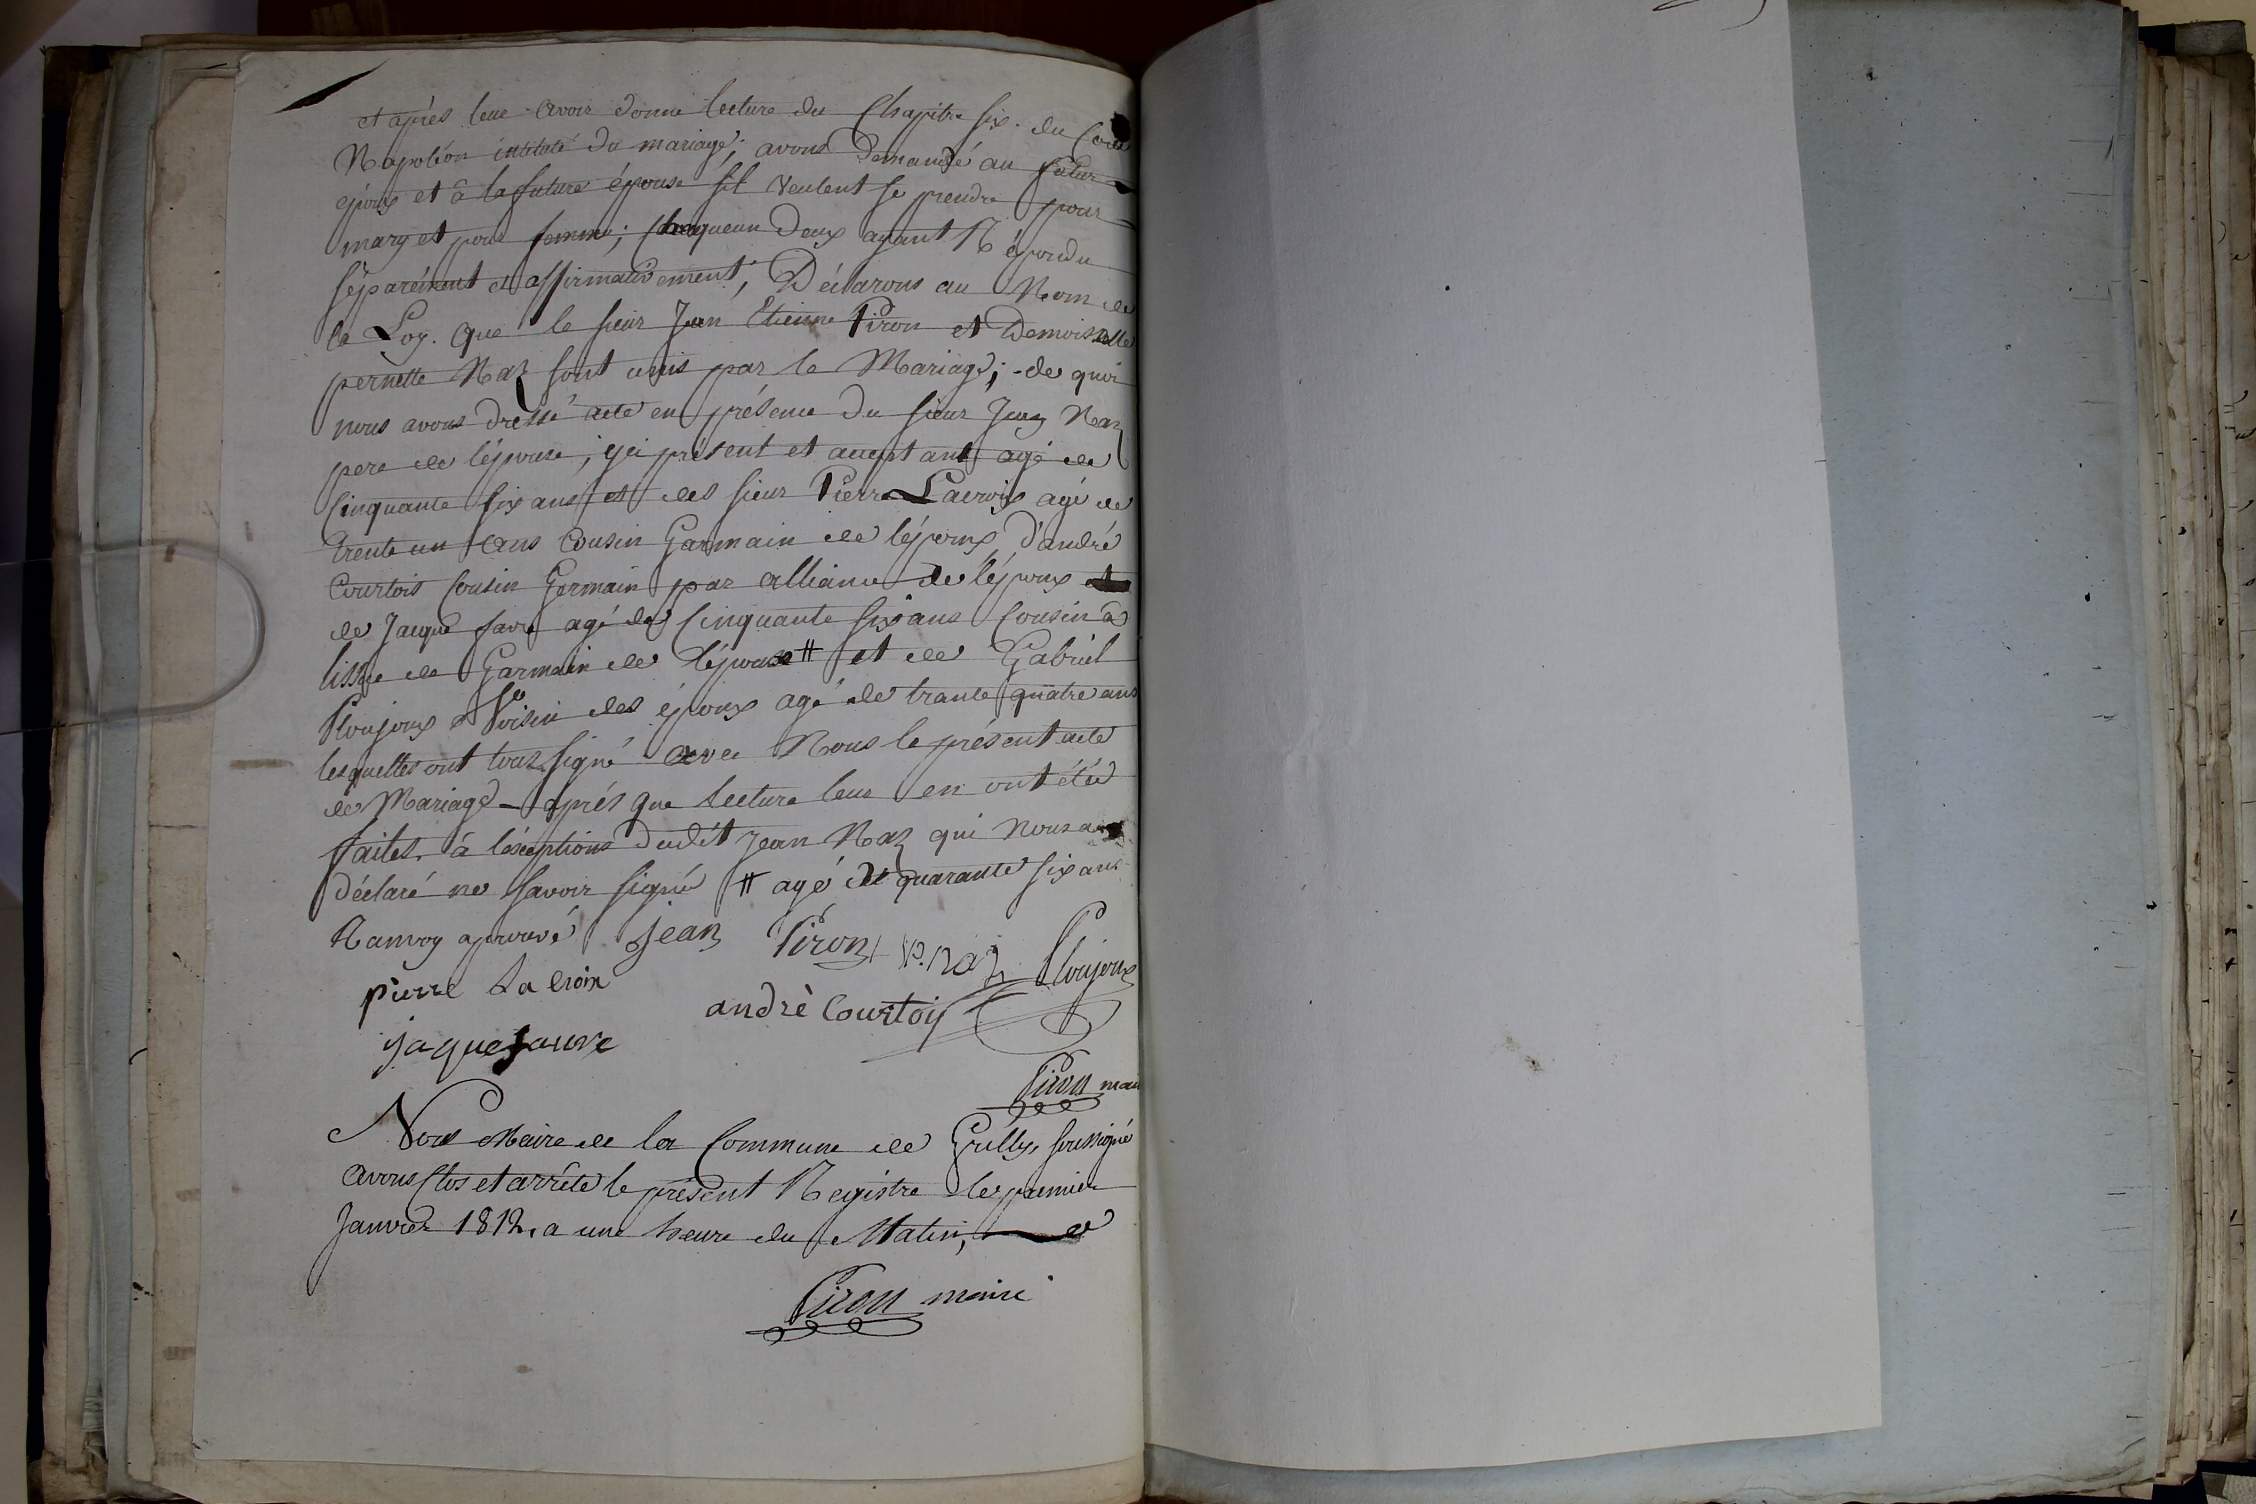 et après leur avoir donné lecture du Chapitre six. du Code
Napoléon intitulé du mariage; avons demandé au futur
époux et à la future épouse sil veulent se prendre pour
mary et pour femme; Chaqueun deux ayant Répondu
séparément et affirmativement; Déclarons au Nom de
la Loy. que le sieur Jean Etienne Piron et Demoiselle
pernette Naz sont unis par le Mariage; de quoi
nous avons dressé acte en présence du sieur Jean Naz
pere de lépouse, yci présent et acceptant agé de
Cinquante six ans et des sieur Pierre Lacroix agé de
trente un ans Cousin Garmain de lépoux d'andré
Courtois Cousin Germain par alliance de lépoux
de Jacque favre agé de Cinquante six ans Cousin à
lissue de Garmain de lépouse # et de Gabriel
Ploujoux Voisin des époux agé de trante quatre ans
lesquelles ont tous signé avec Nous le présent acte
de Mariage après que lecture leur en ont étée
faites. à léxceptions dudit Jean Naz qui Nous a
déclaré ne savoir signé # agé de quarante six ans
Ranvoy aprouvé Jean Piron p. naz Ploujoux
pierre La croix
andrè Courtois
jaque favre
Piron maire
Nous Maire de la Commune de Grilly, soussigné
avons Clos et arrêté le présent Registre le premier
Janvier 1812. a une heure du Matin,
Piron maire